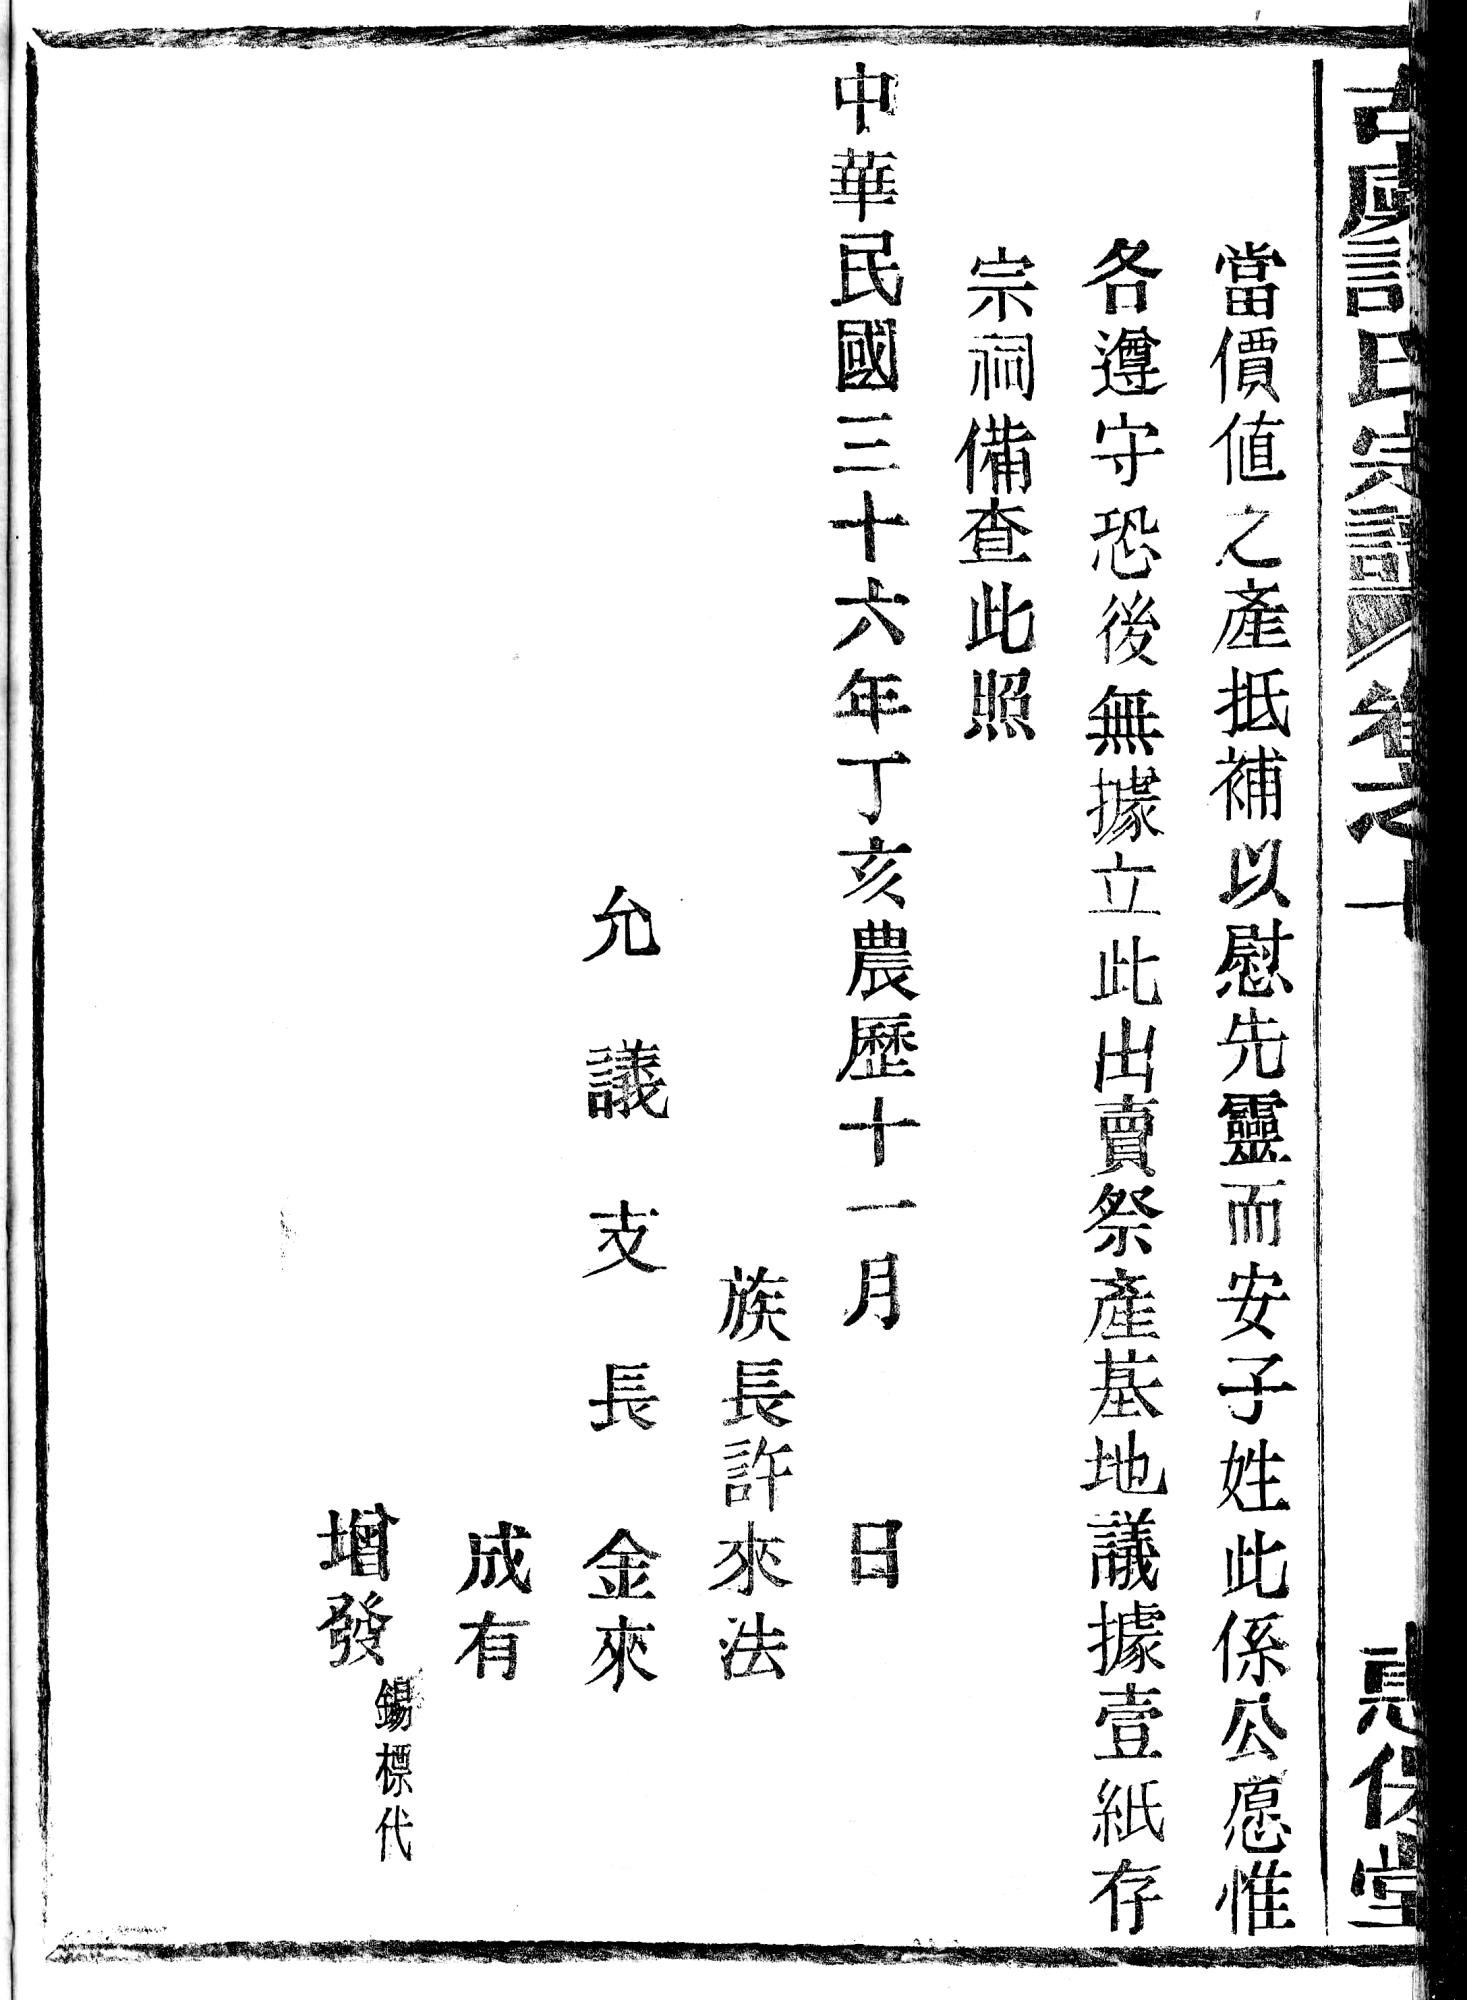 古虞許氏宗譜 卷之十
惠保堂
當價值之產抵補以慰先靈而安子姓此係公愿惟
各遵守恐後無據立此出賣祭產基地議據壹紙存
宗祠備查此照
中華民國三十六年丁亥農歷十一月 日
族長許來法
允議支長 金來
成有
增發 錫標代